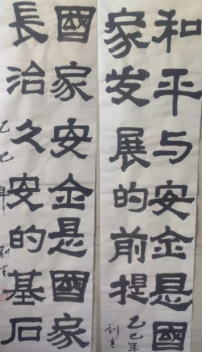 和平与安全是國
家发展的前提
乙巳年
國家安全是國家
長治久安的基石
乙巳年